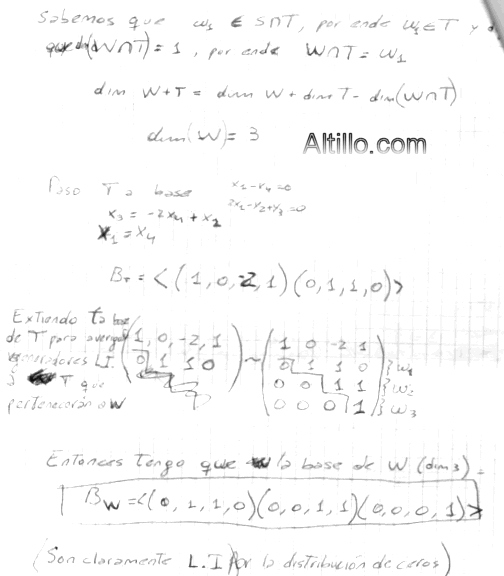 Sabemos que w₁ ∈ S∩T, por ende w₁∈T y
(W∩T) = 1, por ende W∩T = w₁
dim W+T = dim W + dim T - dim(W∩T)
dim(W) = 3
Altillo.com
Paso T a base
x₁-x₄=0
2x₁-x₂+x₃=0
x₃ = -2x₄ + x₂
x₁ = x₄
B_T = <(1,0,-2,1)(0,1,1,0)>
Extiendo la base
de T para
generadores L.I.
T que
pertenecerán a W
(1, 0, -2, 1
0 1 1 0) ~ (1 0 -2 1
0 1 1 0 } w₁
0 0 1 1 } w₂
0 0 0 1) } w₃
Entonces tengo que la base de W (dim 3) =
B_W = <(0,1,1,0)(0,0,1,1)(0,0,0,1)>
(Son claramente L.I por la distribución de ceros)